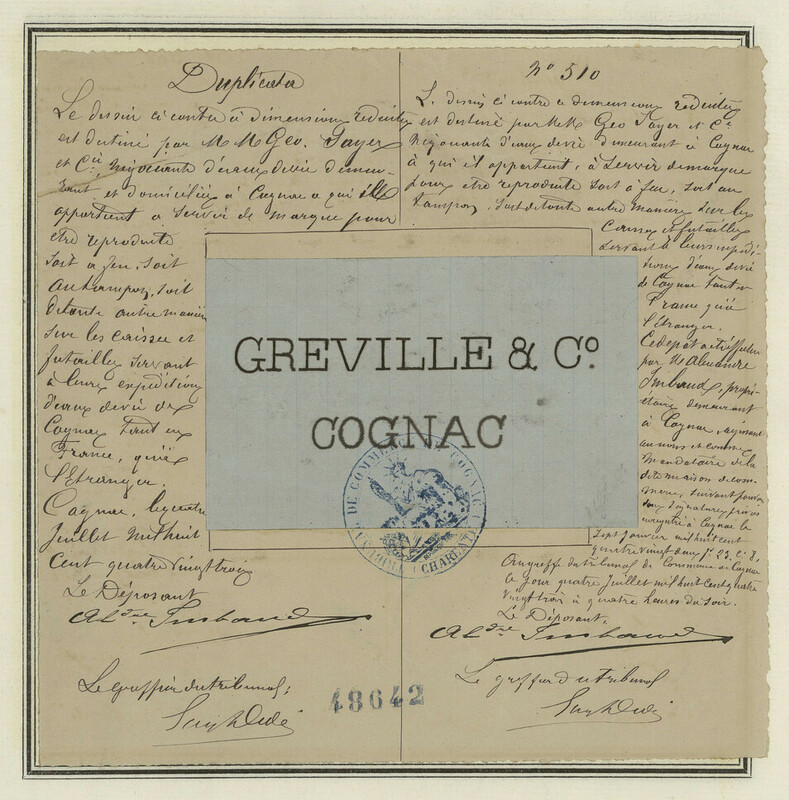 Duplicata
Le dessin ci contre à dimensions réduites
est destiné par M M Geo. Sayer
et Cie Négociants d'eaux de vie demeu-
rant et domiciliés à Cognac a qui elle
appartient a Servir de marque pour
être reproduite
soit a feu, soit
au tampon, soit
de toute autre manière
sur les caisses et
futailles servant
à leurs expéditions
d'eaux de vie de
Cognac tant en
France, qu'à
l'Etranger.
Cognac, le quatre
Juillet mil huit
cent quatre vingt trois
Le Déposant
Alxdre Imbaud
Le Greffier du tribunal;
No 510
Le dessin ci contre a dimensions réduites
est destiné par M.M. Geo Sayer et Cie
Négociants d'eaux de vie demeurant à Cognac
à qui il appartient, à servir de marque
pour être reproduite soit à feu, soit au
tampon, soit de toute autre manière sur les
caisses et futailles
servant à leurs expédi-
tions d'eaux de vie
de Cognac tant en
France qu'à
l'Etranger.
Ce dépôt a été effectué
par Mr Alexandre
Imbaud, propri-
étaire demeurant
à Cognac, agissant
au nom et comme
mandataire de la
dite maison de com-
merce, suivant pouvoir
sous signatures privées
enregistré à Cognac le
sept Janvier mil huit cent
quatre vingt deux fo 23, c. 8.
Au greffe du tribunal de Commerce de Cognac
le jour quatre Juillet mil huit cent quatre
vingt trois à quatre heures du soir.
Le Déposant,
Alxdre Imbaud
Le greffier du tribunal
GREVILLE & Co.
COGNAC
DE COMMERCE DE COGNAC
CHARENTE
48642